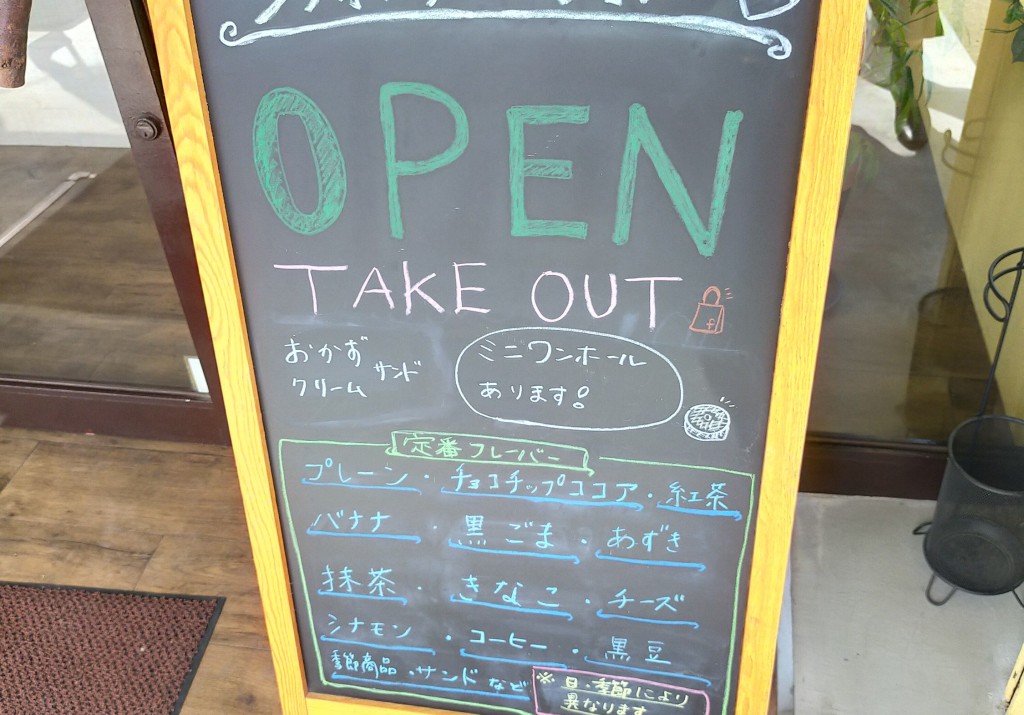 OPEN
TAKE OUT
おかず
クリーム サンド
ミニワンホール
あります!
定番フレーバー
プレーン・チョコチップココア・紅茶
バナナ・黒ごま・あずき
抹茶・きなこ・チーズ
シナモン・コーヒー・黒豆
季節商品・サンドなど
※日・季節により
異なります